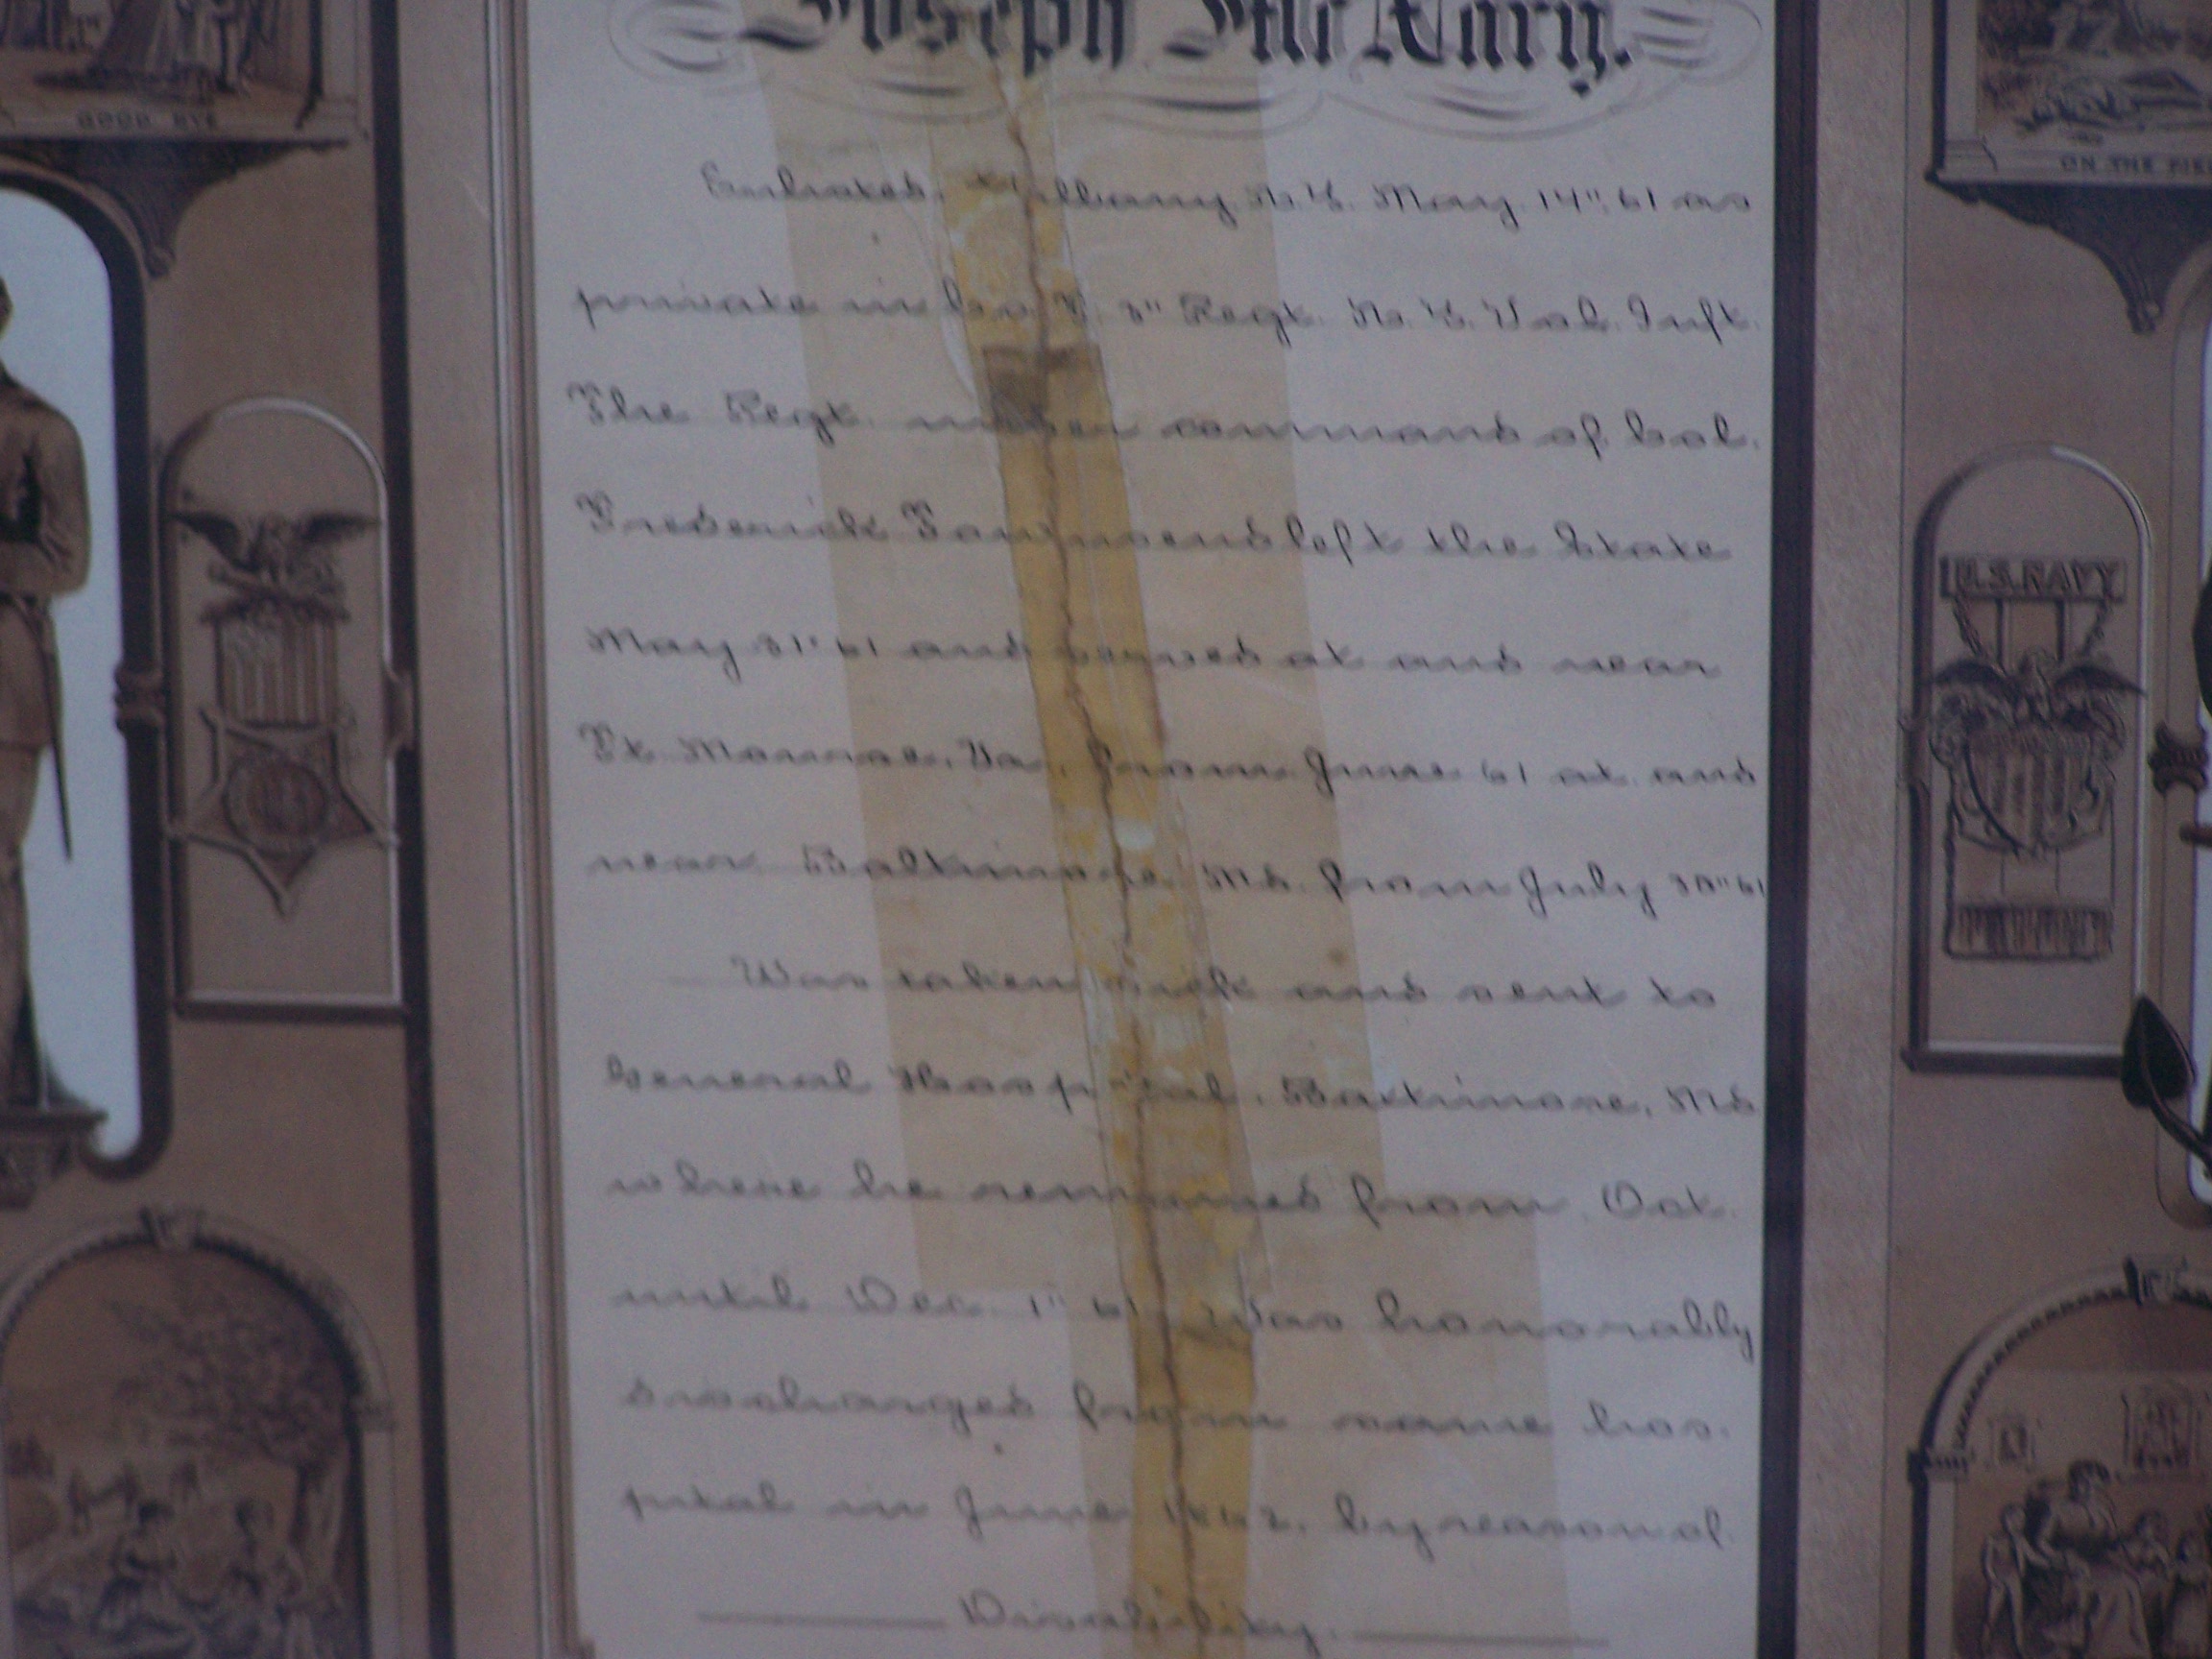 Joseph Mc Nary.
GOOD BYE
ON THE
Enlisted. Albany. N.Y. May. 14". 61 as
private in Co. F. 3" Regt. N.Y. Vol. Inft.
The Regt. under command of Col.
Frederick Townsend left the State
May 31" 61 and served at and near
Ft Monroe, Va., from June 61 at and
near Baltimore, Md. from July 30" 61
Was taken sick and sent to
General Hospital, Baltimore, Md
where he remained from Oct.
until Dec. 1" 61. Was honorably
discharged from same hos-
pital in June 1862, by reason of
Disability.
U.S. NAVY